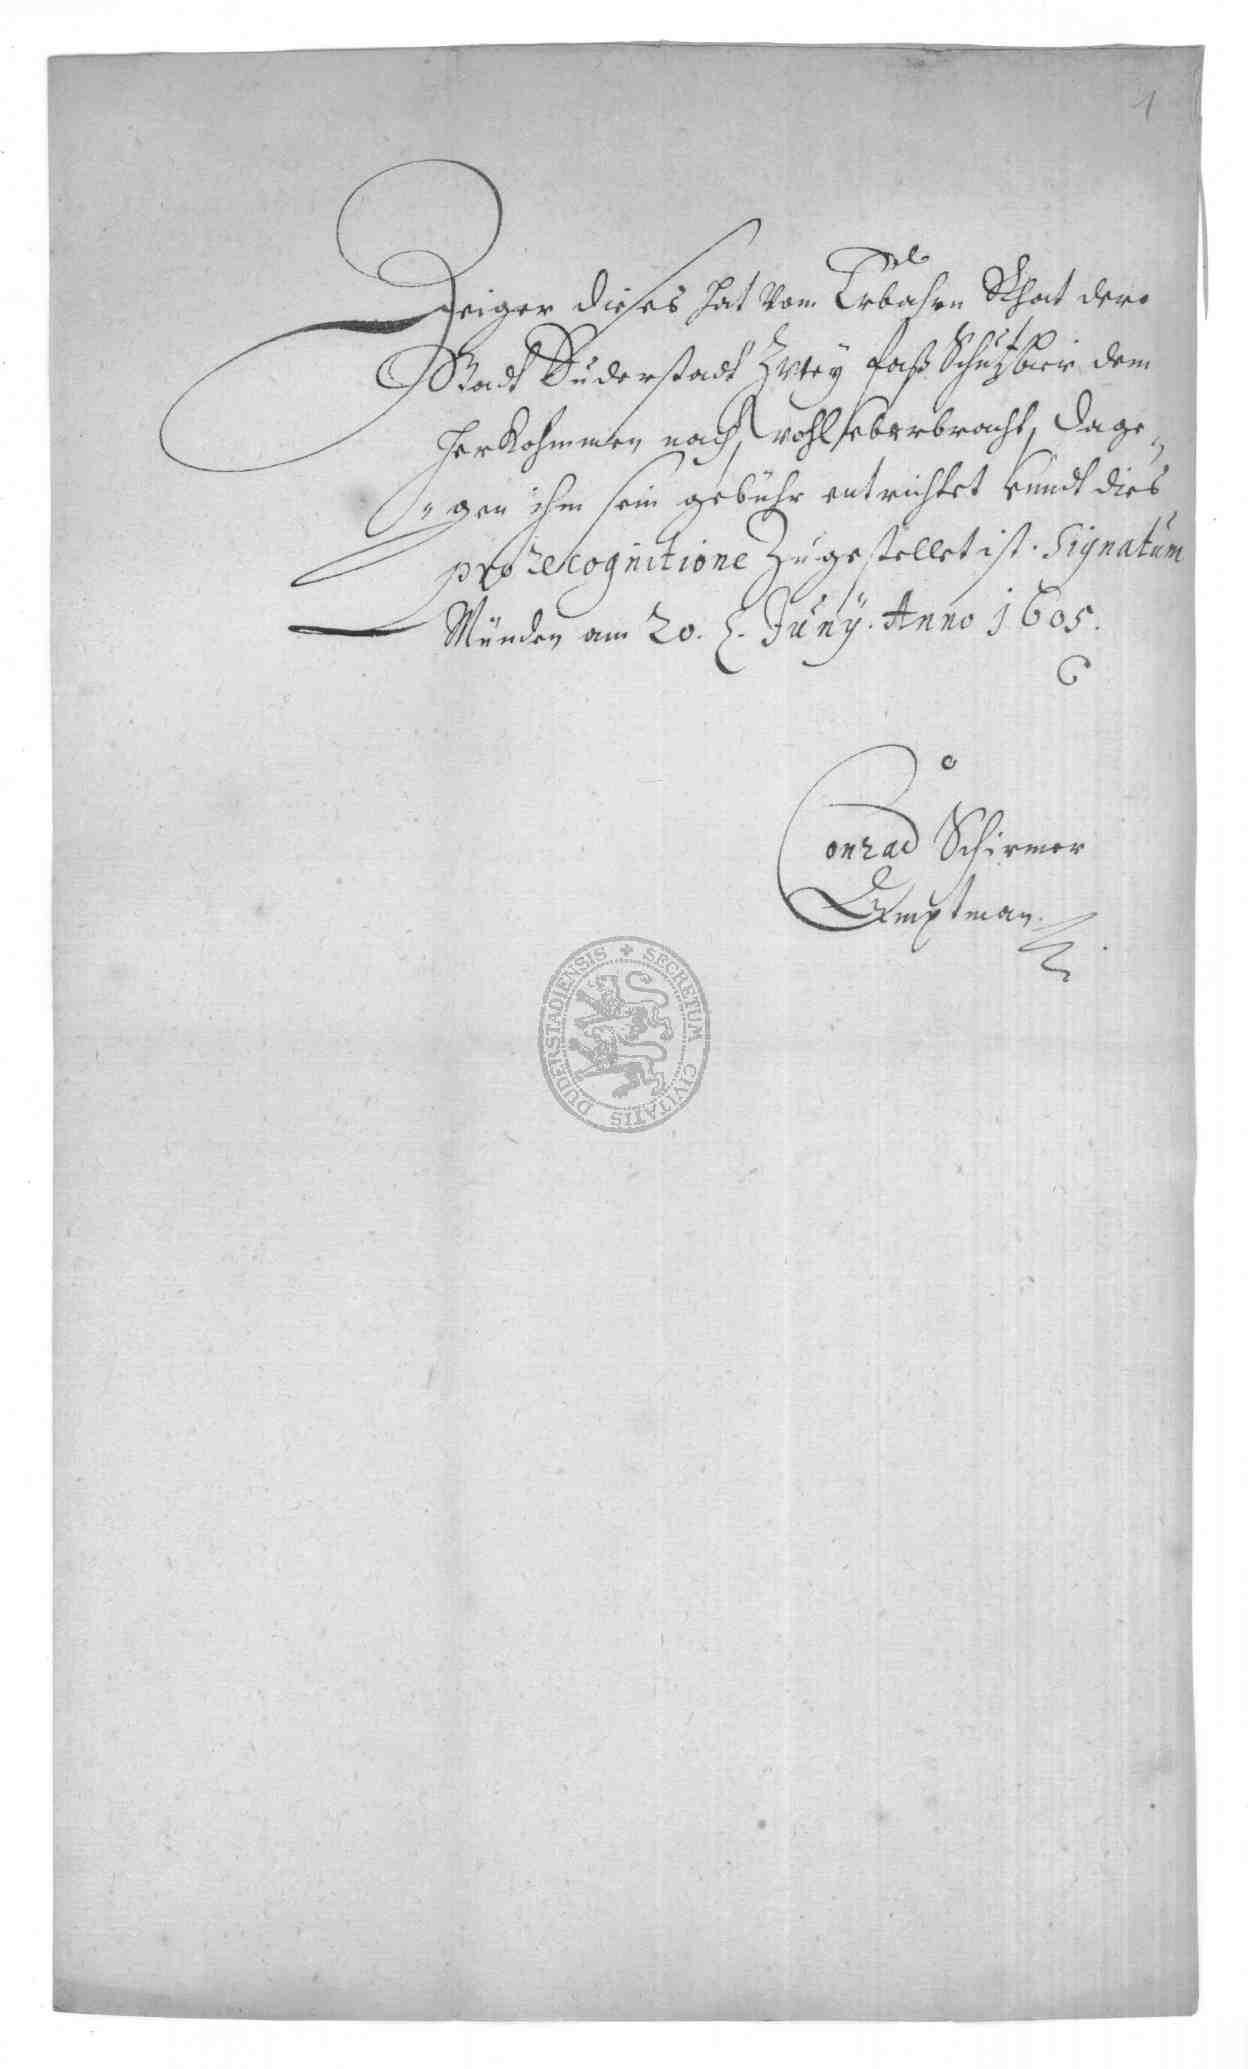 1
Zeiger dieses hat vom Erbahrn Rhat dero
Stadt Duderstadt zwey faß Schutzbier dem
herkohmmen nach, wohl eberbracht, dage„
„gen ihm sein gebühr entrichtet unndt dies
pro recognitione Zugestellet ist. Signatum
Münden am 20. Junÿ. Anno 1605.
Conrad Schirmer
Amptman.
SECRETUM CIVITATIS DUDERSTADIENSIS